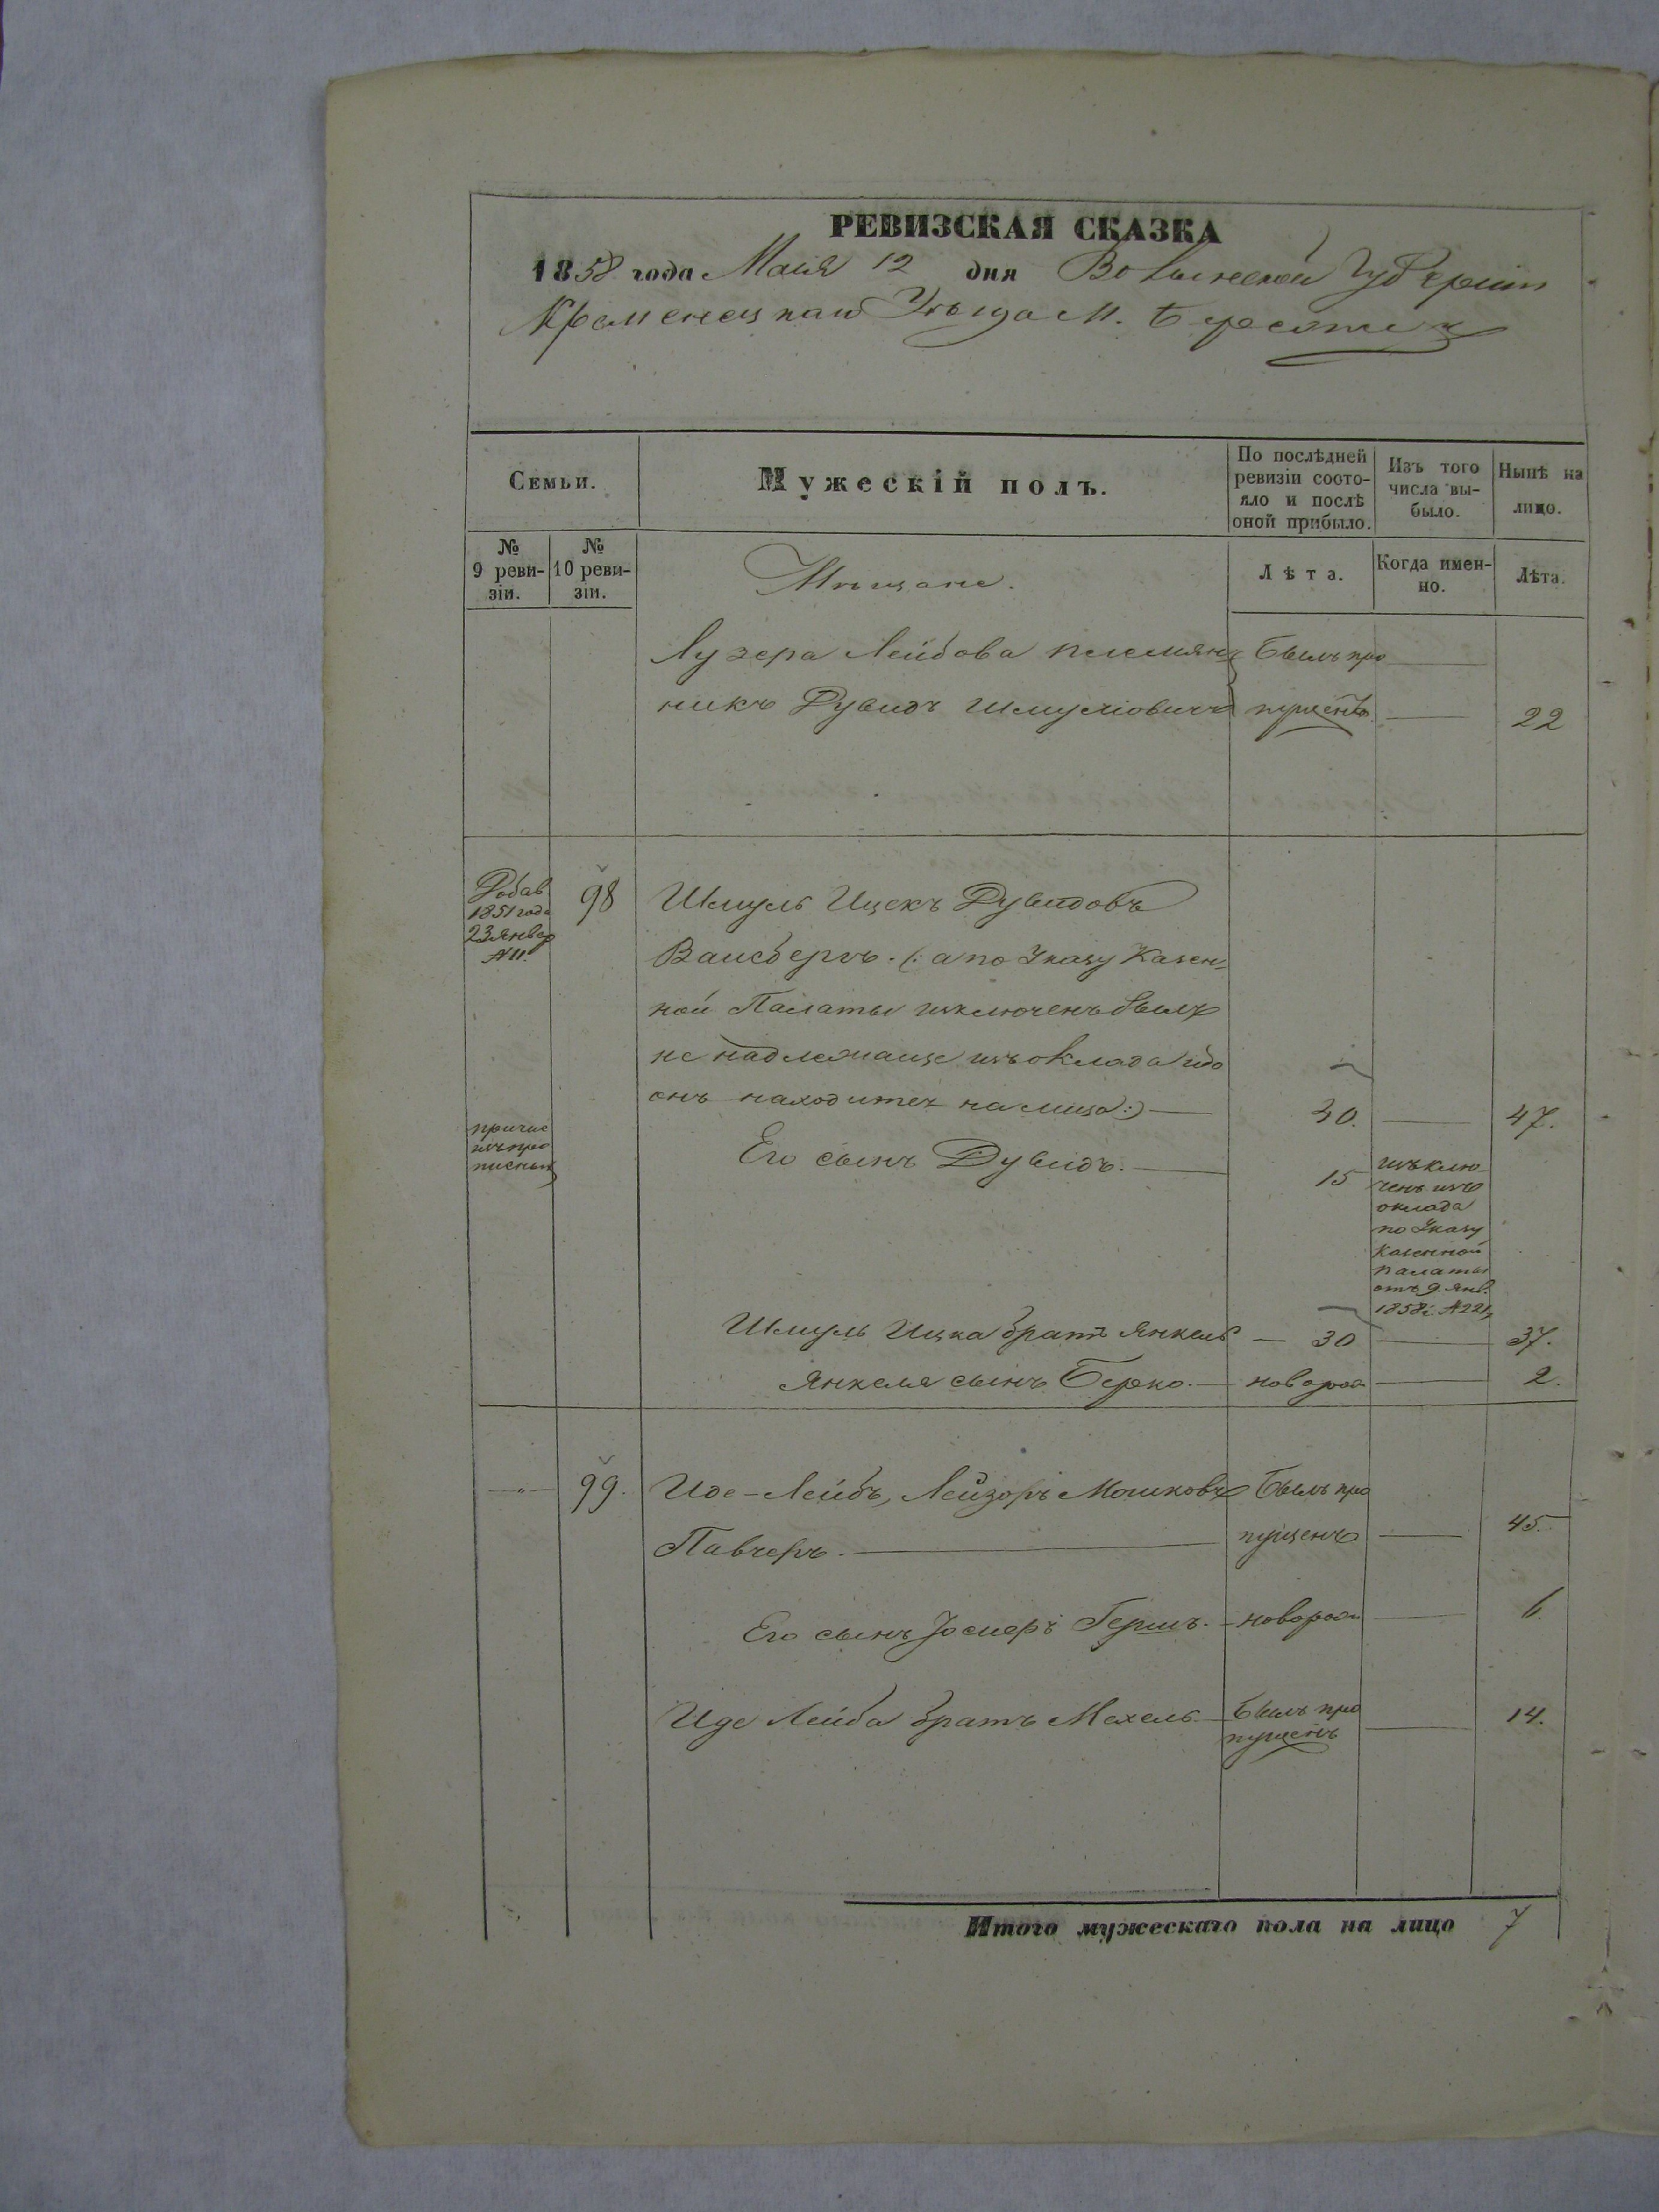 РЕВИЗСКАЯ СКАЗКА
1858 года Маія 12 дня Волынской Губерніи
Кременецкаго Уѣзда М. Берестечк
Семьи.
Мужескій полъ.
По послѣдней ревизіи состояло и послѣ оной прибыло.
Изъ того числа выбыло.
Нынѣ на лицо.
№ 9 ревизіи.
№ 10 ревизіи.
Мѣщане.
Лѣта.
Когда именно.
Лѣта.
Лузера Лейбова племян- Былъ про
никъ Дувидъ Шмуліовичъ пущенъ 22
Добав
1851 года
23 Январ
№ 11.
98 Шмуль Ицекъ Дувидовъ
Вайсберъ. (: а по Указу Казен-
ной Палаты изключенъ былъ
не надлежаще изъ оклада ибо
онъ находится на лицо :) 40. 47.
причис
изъ про
писных
Его сынъ Дувидъ. 15
изъклю
ченъ изъ
оклада
по Указу
Казенной
Палаты
отъ 9 Янв.
1858 г. № 221
Шмуль Ицка братъ Янкель 30 37.
Янкеля сынъ Берко. новорож 2.
99. Иде-Лейбъ, Лейзоръ Мошковъ Былъ про
Павчеръ. пущенъ 45.
Его сынъ Іосиеръ Гершъ. новорож 6
Иде Лейба братъ Мехель Былъ про
пущенъ 14.
Итого мужескаго пола на лицо 7